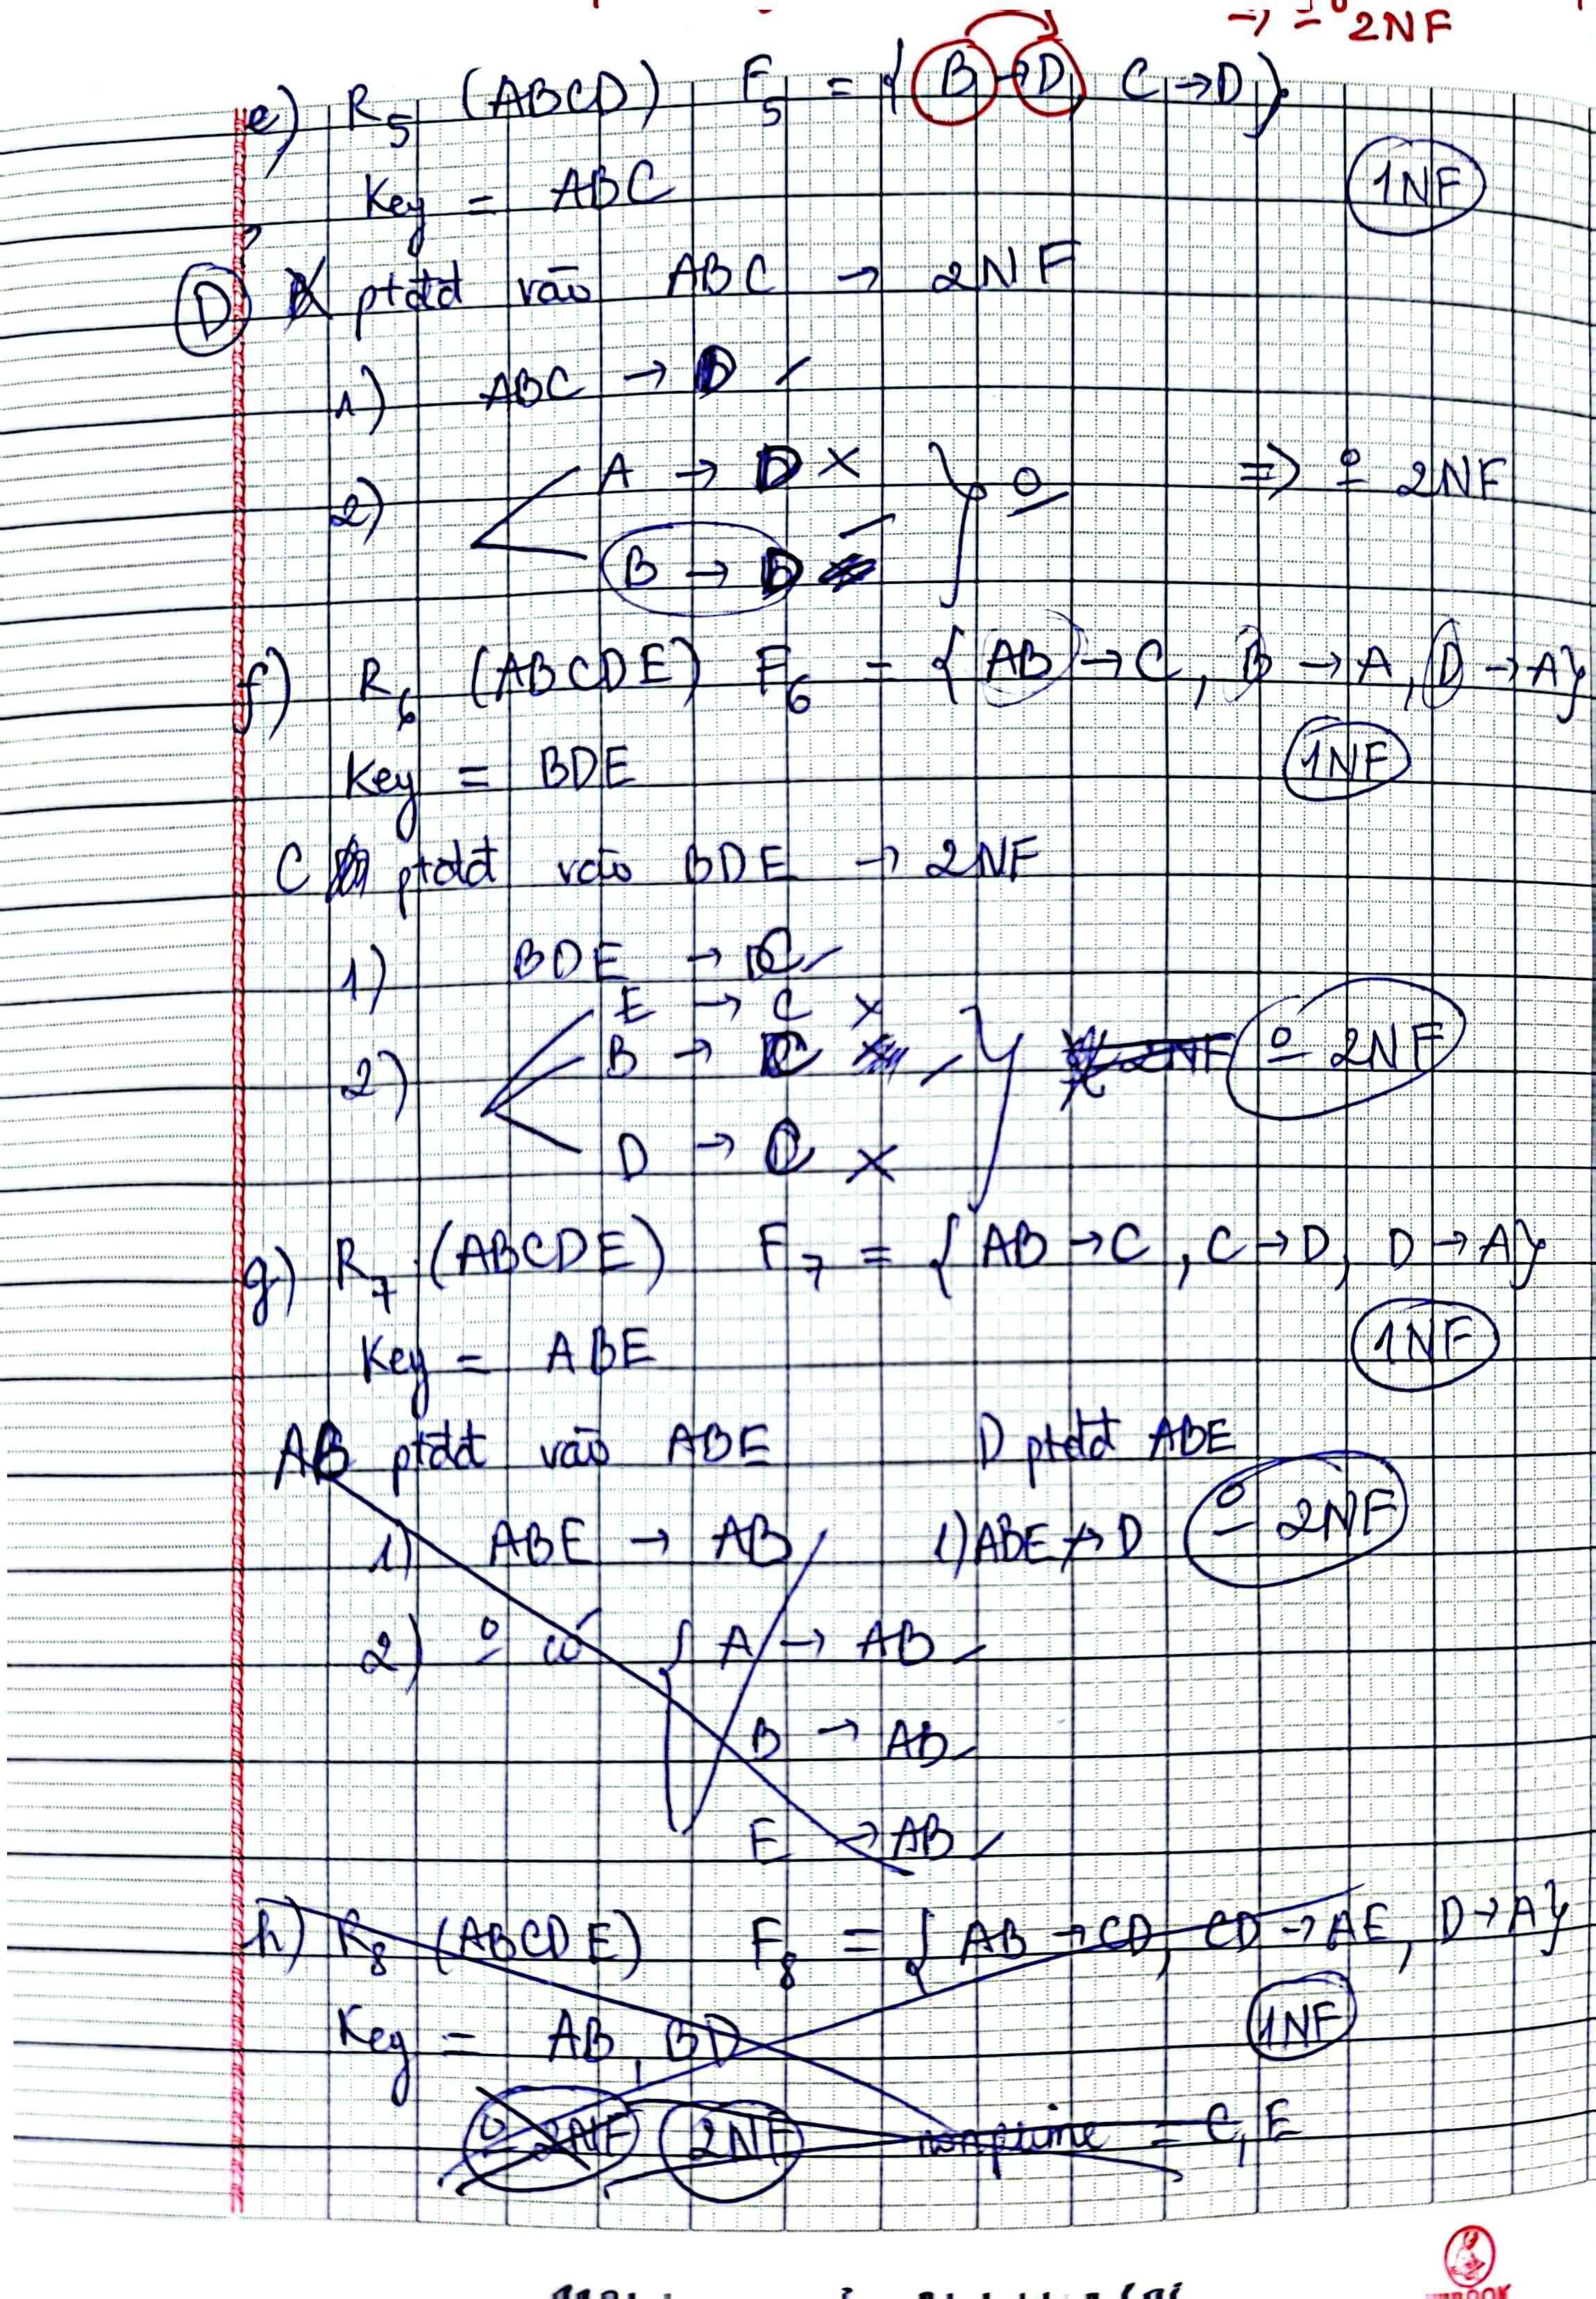 → º 2NF
e) R5 (ABCD) F5 = { B → D, C → D}
Key = ABC
1NF
D ptđđ vào ABC → 2NF
1) ABC → D ✓
2) A → D ×
B → D ✓
º
=> º 2NF
f) R6 (ABCDE) F6 = { AB → C, B → A, D → A}
Key = BDE
1NF
C ptđđ vào BDE → 2NF
1) BDE → C ✓
2) E → C ×
B → C ✓
D → C ×
º 2NF
g) R7 (ABCDE) F7 = { AB → C, C → D, D → A}
Key = ABE
1NF
AB ptđđ vào ABE
1) ABE → AB
2) º có { A → AB ✓
B → AB ✓
E → AB ✓
D ptđđ ABE
1) ABE ↛ D
º 2NF
h) R8 (ABCDE) F8 = { AB → CD, CD → AE, D → A}
Key = AB, BD
1NF
º 2NF 2NF nonprime = C, E